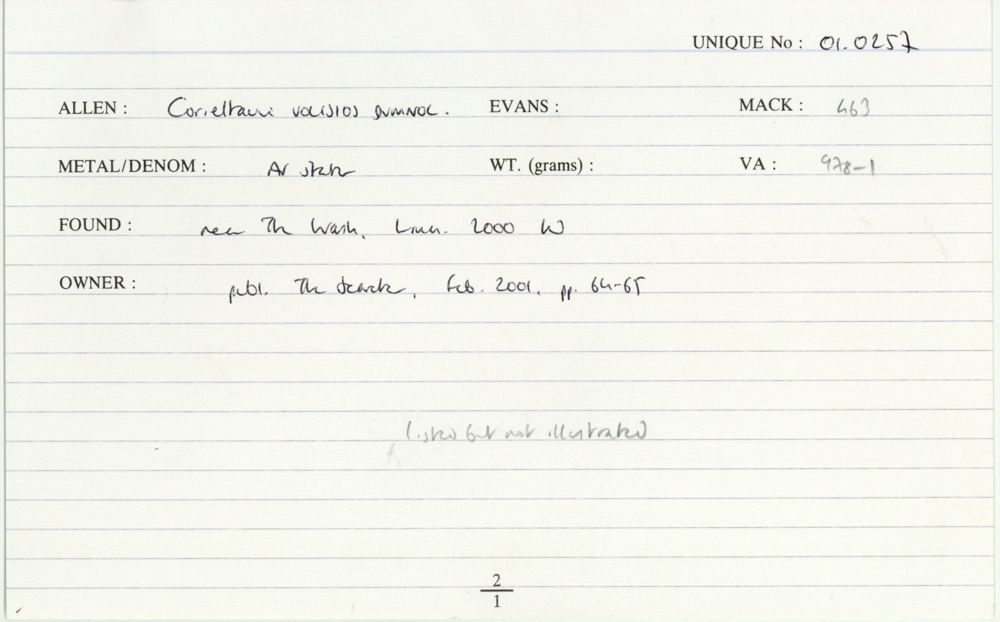 UNIQUE No : 01.0257
ALLEN : Corieltauvi VOLISIOS DUMNOC. EVANS : MACK : 463
METAL/DENOM : AV stater WT. (grams) : VA : 978-1
FOUND : near The Wash, Lincs. 2000 W
OWNER : publ. The Searcher, Feb. 2001, pp. 64-65
listed but not illustrated
2
1